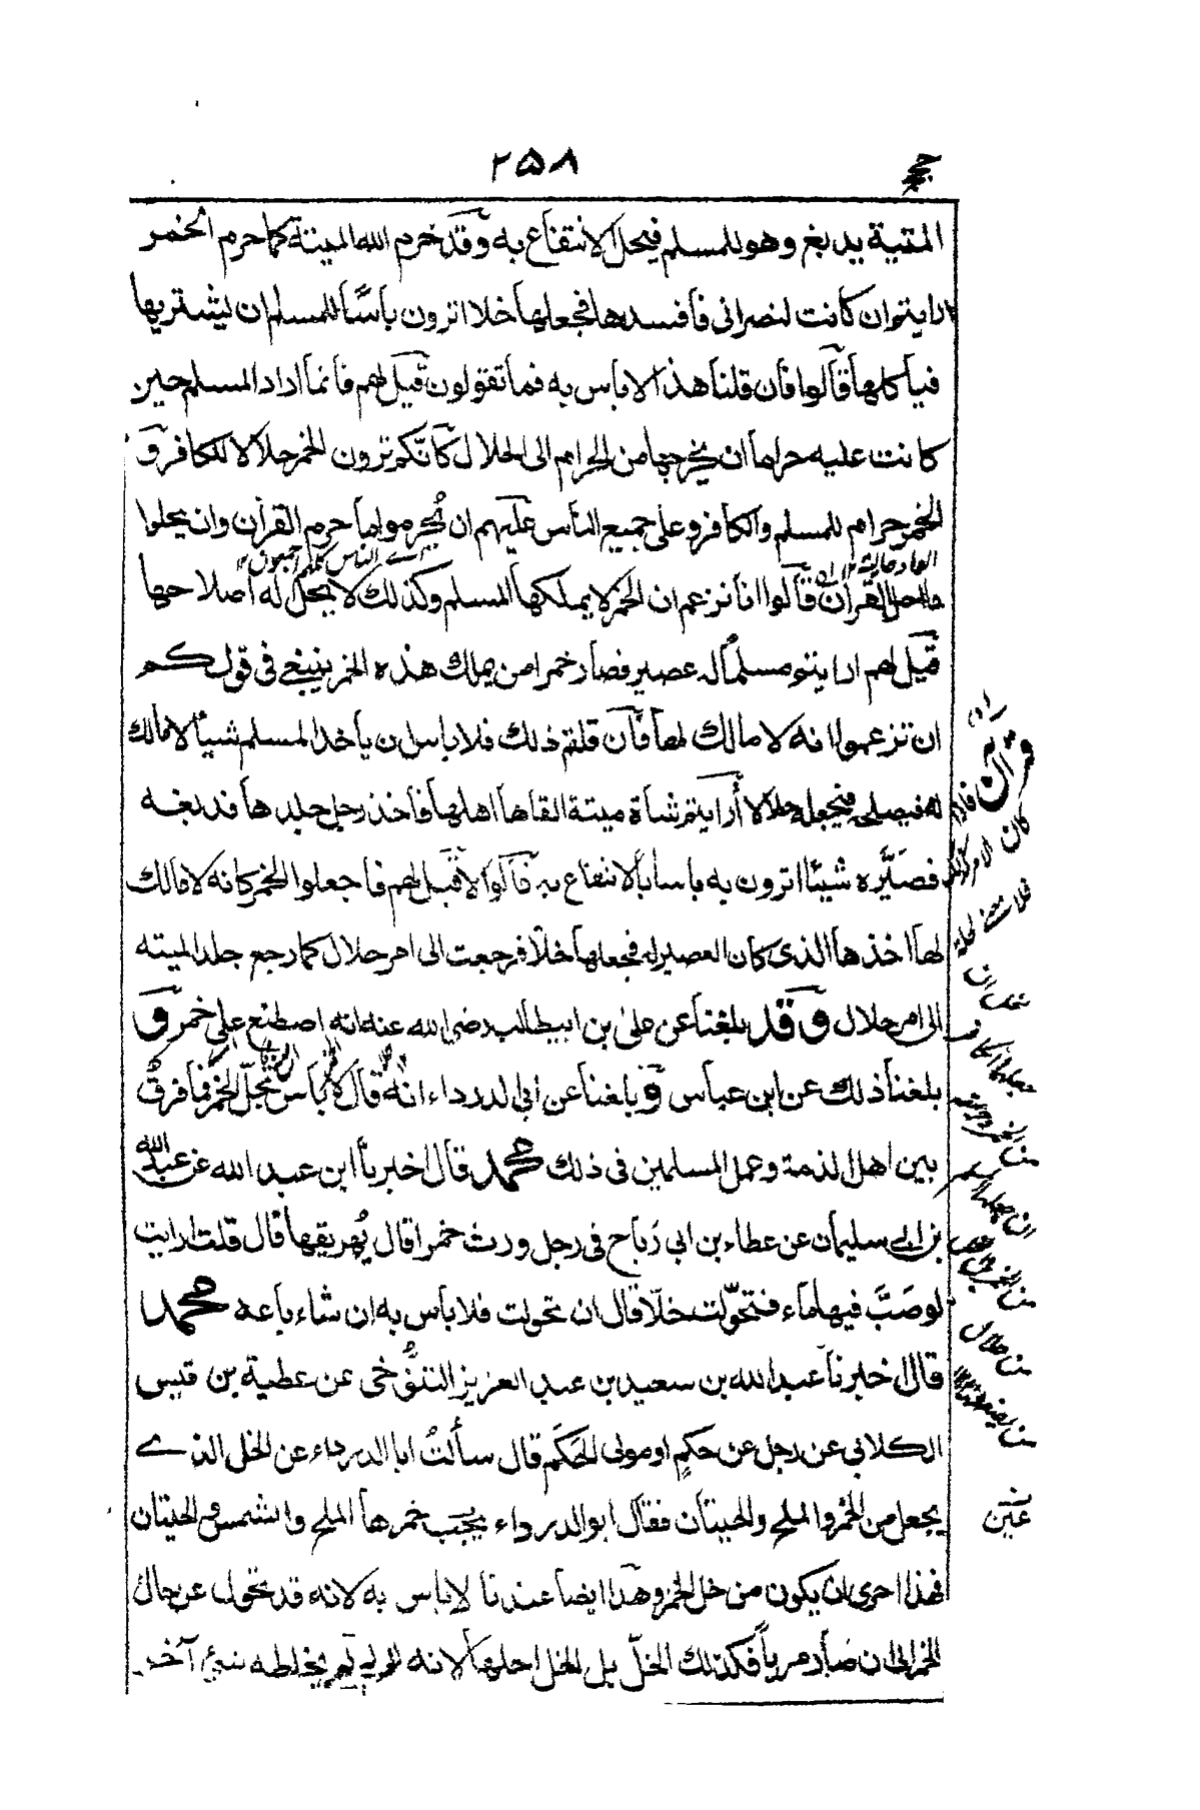 ٢٥٨
حج
الميتة يدبغ وهو للمسلم فيحل الانتفاع به وقد حرم الله الميتة كما حرم الخمر
ارايتم ان كانت لنصرانى فافسدها فجعلها خلا اترون بأسًا للمسلم ان يشتريها
فيأكلها قالوا فان قلنا هذا لاباس به فما تقولون قيل لهم فانما اراد المسلم حين
كانت عليه حراما ان يخرجها من الحرام الى الحلال كانّكم ترون الخمر حلالا للكافر و
الخمر حرام للمسلم والكافر وعلى جميع الناس عليهم ان يُحرموا ما حرم القرآن وان يحلوا
ما احل القرآن قالوا انا نزعم ان الخمر لا يملكها المسلم وكذلك لا يحل له اصلاحها
قيل لهم ارايتم مسلمًا له عصير فصار خمرا من يملك هذه الخمر ينبغي فى قولكم
ان تزعموا انه لا مالك لها فان قلتم ذلك فلا باس بان ياخذ المسلم شيئا لا مالك
له فيصلحه فيجعله حلالا أرايتم شاة ميتة القاها اهلها فاخذ رجل جلدها فدبغه
فصَيَّره شيئا اترون به باسا بالانتفاع به قالوا لا قيل لهم فاجعلوا الخمر كانه لا مالك
لها اخذها الذى كان العصير له فجعلها خلا فرجعت الى امر حلال كما رجع جلد الميتة
الى امر حلال وقد بلغنا عن على بن ابيطالب رضى الله عنه انه اصطنع على خمر و
بلغنا ذلك عن ابن عباس و بلغنا عن ابى الدرداء انه قال لا بأس بخلّ الخمر فما فرق
بين اهل الذمة وعمل المسلمين فى ذلك محمد قال اخبرنا ابن عبد الله عن عبد الله
بن ابي سليمان عن عطاء بن ابى رَباح فى رجل ورث خمرا قال يُهريقها قال قلت ارايت
لو صَبَّ فيها ماء فتحوّلت خلّا قال ان تحولت فلا باس به ان شاء باعه محمد
قال اخبرنا عبد الله بن سعيد بن عبد العزيز التنُّوخى عن عطية بن قيس
الكلابى عن رجل عن حكمٍ او مولى الحَكَم قال سألتُ ابا الدرداء عن الخل الذي
يجعل من الخمر والملح والحيتان فقال ابو الدرداء يجبب خمرها الملح والشمس والحيتان
فهذا احرى ان يكون من خل الخمر وهذا ايضا عندنا لاباس به لانه قد تحول عن حال
الخمر الى ان صار مرياً فكذلك الخلّ بل الخل احلها لانه لم يخلطه شئ آخر
قرآن فاذا
كان الامر كذلك
من حلال
عين